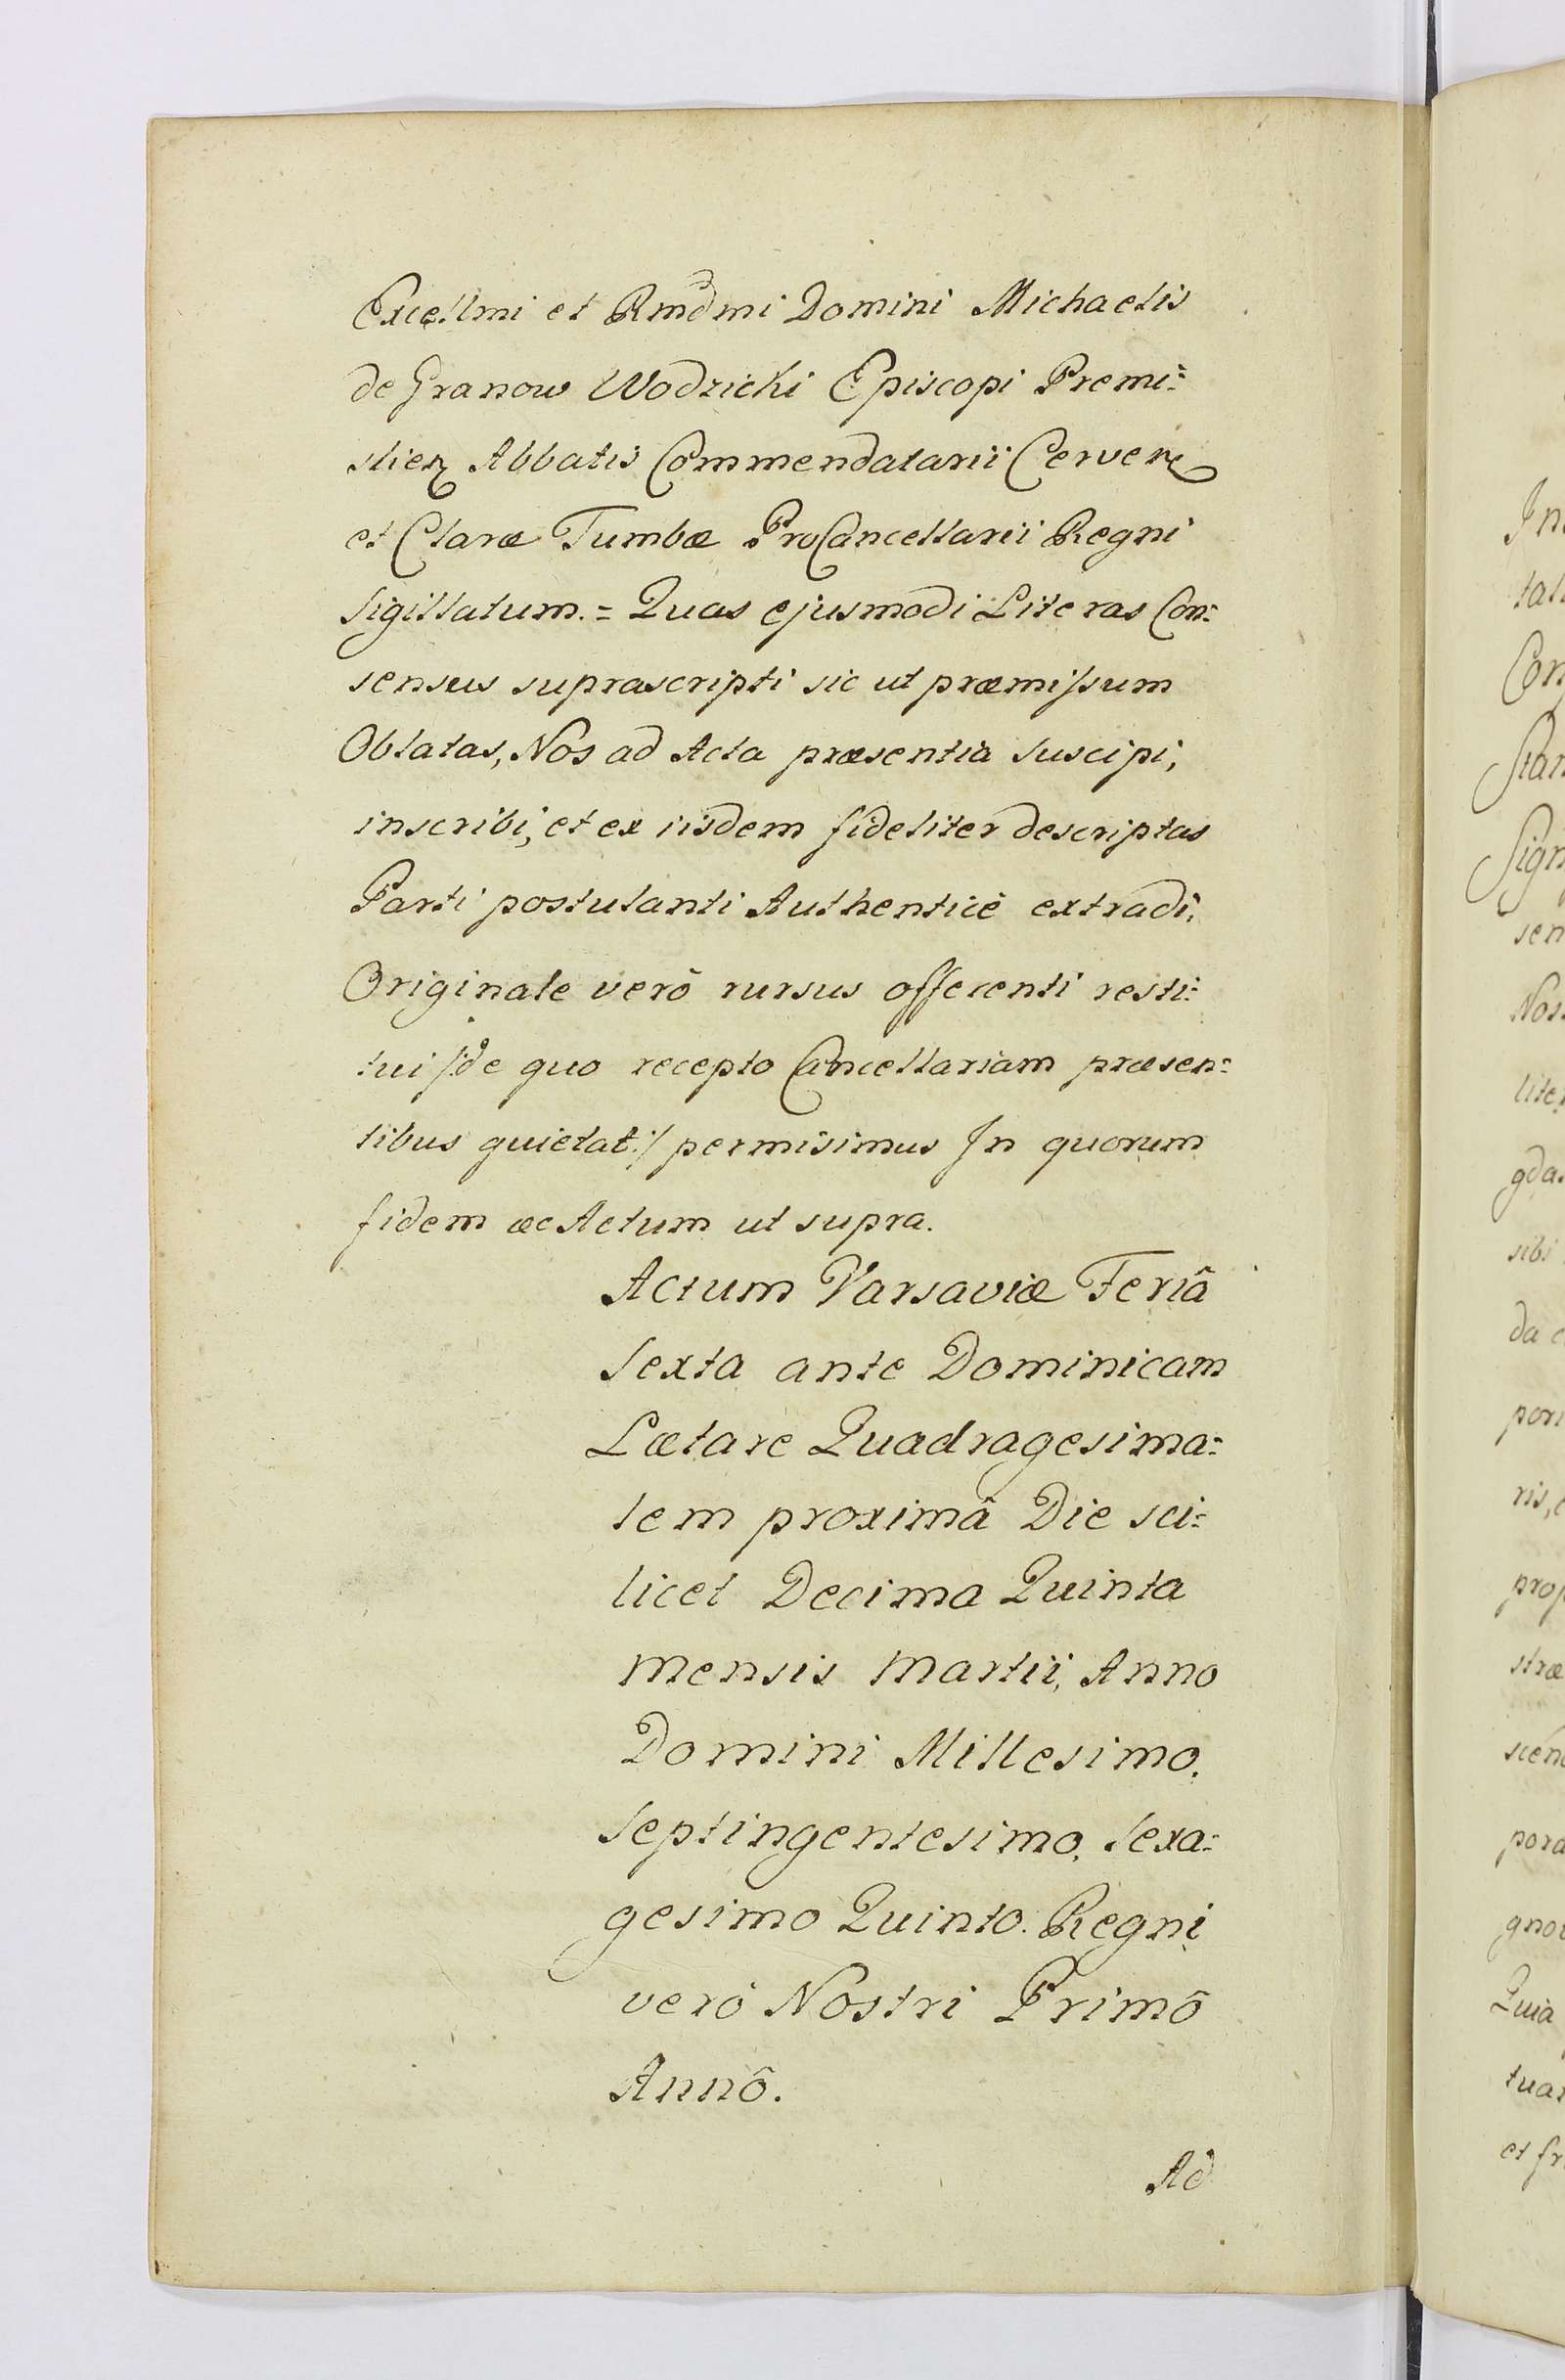 Excellmi et Rmdmi Domini Michaelis
de Granow Wodzicki Episcopi Premi=
slien Abbatis Commendatarii Cerven
et Claræ Tumbæ ProCancellarii Regni
Sigillatum. = Quas ejusmodi Literas Con=
sensus suprascripti sic ut præmissum
Oblatas, Nos ad Acta præsentia suscipi,
inscribi, et ex iisdem fideliter descriptas
Parti postulanti Authenticè extradi,
Originale verò rursus offerenti resti=
tui /:de quo recepto Cancellariam præsen=
tibus quietat:/ permisimus In quorum
fidem ac Actum ut supra.
Actum Varsaviæ Feriâ
Sexta ante Dominicam
Lætare Quadragesima=
lem proximâ Die sci=
licet Decima Quinta
mensis Martii, Anno
Domini Millesimo.
Septingentesimo. Sexa=
gesimo Quinto. Regni
verò Nostri Primô
Annô.
Ad
In
tal
Con
Stan
Sign
sen
Nos
lite
gda
sibi
da
pori
ris,
prop
stræ
scen
pora
gno
Quia
tuar
et fr